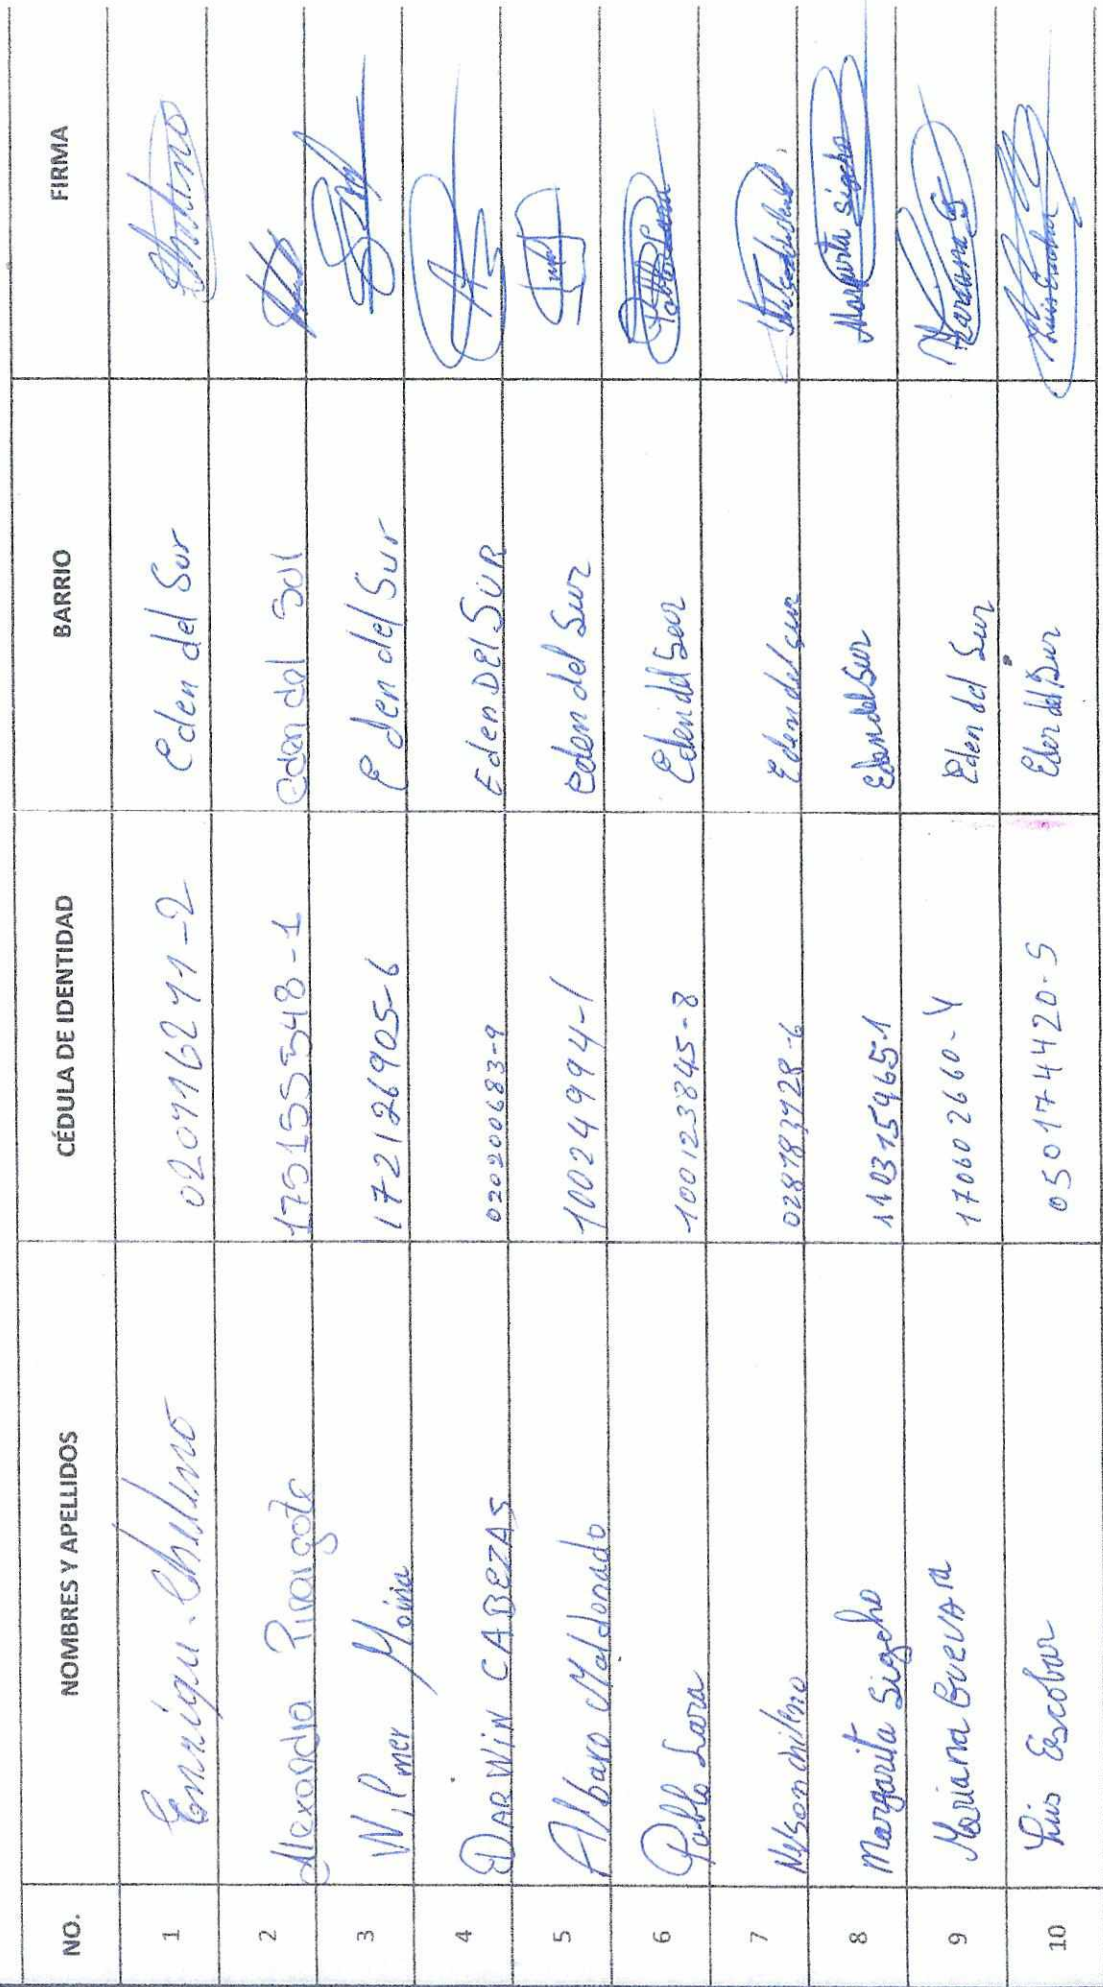 NO. NOMBRES Y APELLIDOS CÉDULA DE IDENTIDAD BARRIO FIRMA
1 Eden del Sur
2 Alexandra 175155548-1 Eden del Sul
3 Wilmer Moina 172126905-6 Eden del Sur
4 DARWIN CABEZAS 020200683-9 Eden DEl SUR
5 Albaro Maldonado 10024994-1 Eden del Sur
6 Pablo Lara 100123845-8 Eden del Sur
7 Nelson chileno Eden del sur
8 Margarita Sigcho 110315965-1 Eden del Sur Margarita Sigcho
9 Mariana GUEVARA 170602660-4 Eden del Sur Mariana G
10 Luis Escobar 050174420-5 Eden del Sur Luis Escobar